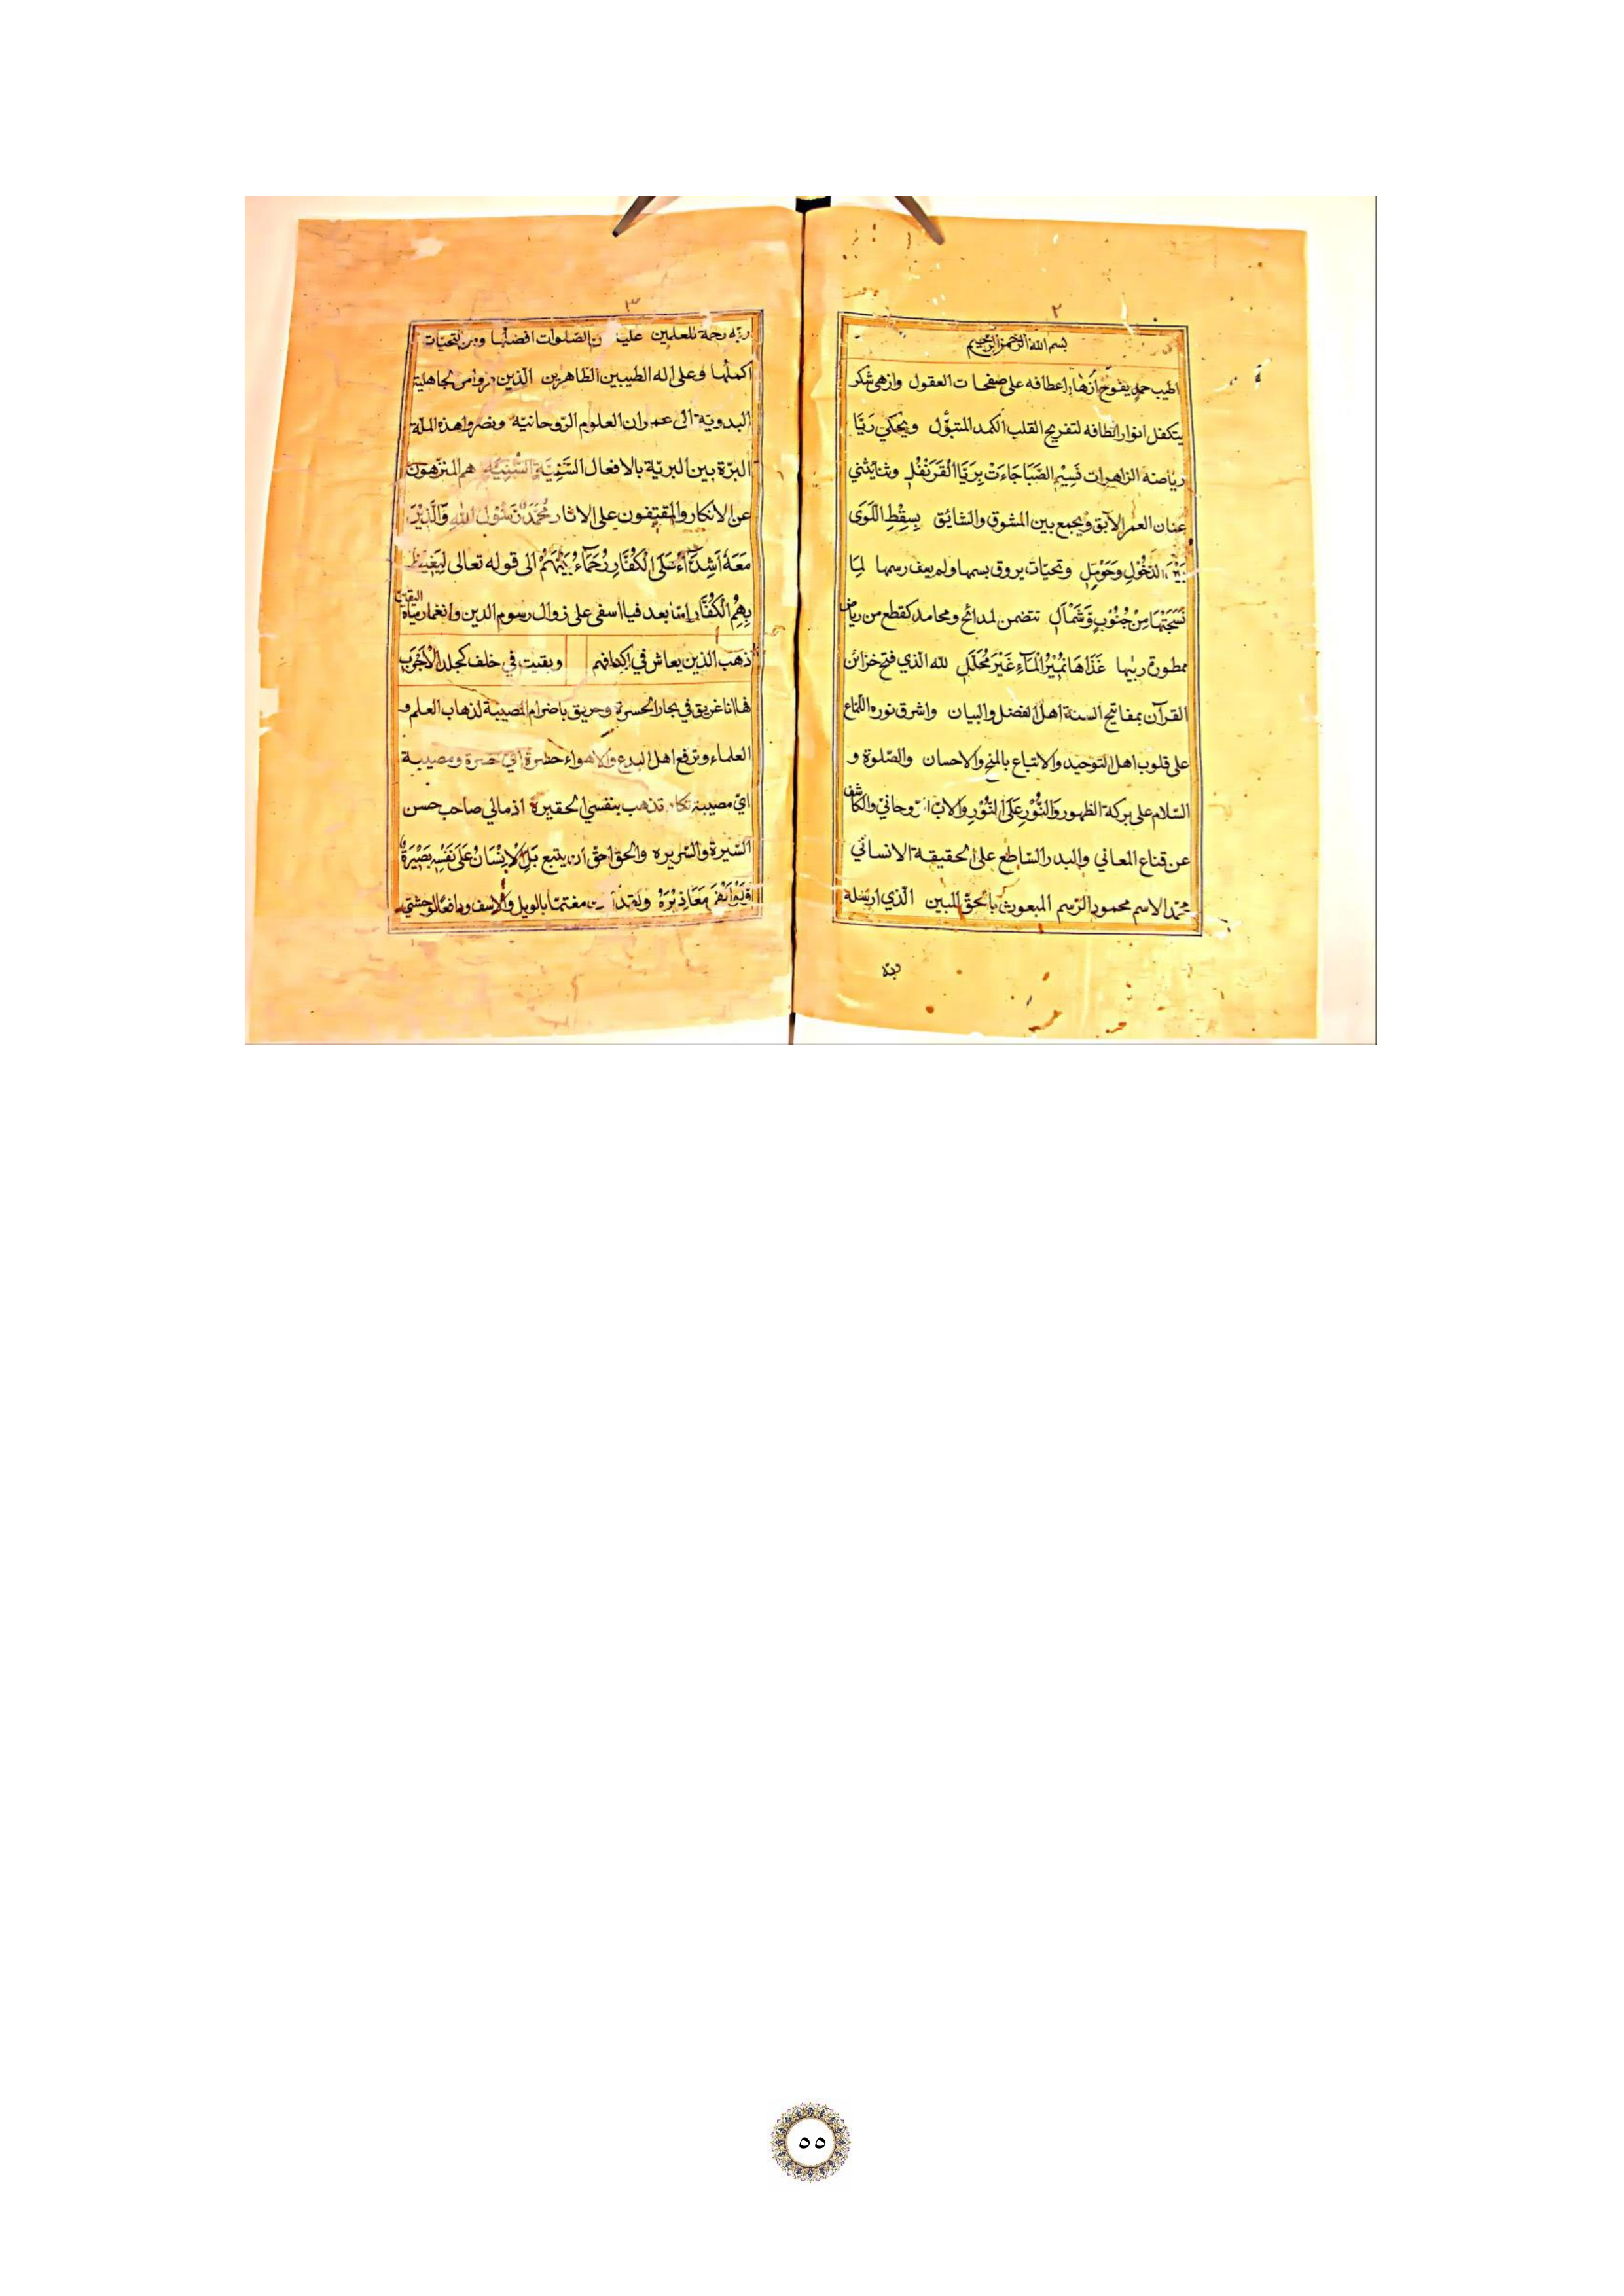 ٢
بسم الله الرحمن الرحيم
اطيب حمد يفوح ازهار اعطافه على صفحات العقول وازهى شكر
يتكفل انوار الطافه لتفريح القلب الكمد المتبول ويحكي ريّا
رياضه الزاهرات نَسِيْمَ الصَّبَا جَاءَتْ بِرَيَّا الْقَرَنْفُلِ وثناء يثني
عنان العمر الآبق ويجمع بين المشوق والشائق بِسِقْطِ اللَّوَى
بَيْنَ الدَّخُوْلِ وَحَوْمَلِ وتحيّات يروق بسمها ولم يعف رسمها لِمَا
نَسَجَتْهَا مِنْ جُنُوْبٍ وَّشَمْأَلِ تتضمن لمدائح ومحامد كقطع من رياض
ممطورة ربيها غَذَاهَا نَمِيْرُ الْمَآءِ غَيْرَ مُحَلَّلِ لله الذي فتح خزائن
القرآن بمفاتيح السنة اهل الفضل والبيان واشرق نوره اللماع
على قلوب اهل التوحيد والاتباع بالمنح والاحسان والصّلوة و
السّلام على بركة الظهور وَالنُّوْرِ عَلَى النُّوْرِ والاب الروحاني والكاشف
عن قناع المعاني والبدر الساطع على الحقيقة الانساني
محمّد الاسم محمود الرّسم المبعوث بالحقّ المبين الّذي ارسله
ربّه
٣
ربّه رحمة للعلمين عليه من الصّلوات افضلها ومن التحيّات
اكملها وعلى اله الطيبين الطاهرين الّذين من الجاهلية
البدويّة الى عمران العلوم الرّوحانيّة ونصروا هذه الملّة
البرّة بين البريّة بالافعال السَّنِيَّةِ السُّنِّيَّةِ هم المنزّهون
عن الانكار والمقتفون على الاثار مُحَمَّدٌ رَّسُوْلُ اللهِ وَالَّذِيْنَ
مَعَهٗ اَشِدَّآءُ عَلَى الْكُفَّارِ رُحَمَآءُ بَيْنَهُمْ الى قوله تعالى لِيَغِيْظَ
بِهِمُ الْكُفَّارَ امّا بعد فيا اسفى على زوال رسوم الدين وانغمار
ذهب الذين يعاش في اكنافهم وبقيت في خلف كجلد الاجرب
ها انا غريق في بحار الحسرة وحريق باضرام المصيبة لذهاب العلم و
العلماء وترفع اهل البدع والاهواء حسرة ايّ حسرة ومصيبة
ايّ مصيبة تكاد تذهب بنفسي الحقيرة اذ مالي صاحب حسن
السّيرة والسّريرة والحق احقّ ان يتبع بَلِ الْاِنْسَانُ عَلٰى نَفْسِهٖ بَصِيْرَةٌ
وَّلَوْ اَلْقٰى مَعَاذِيْرَهٗ ولقد مغتمّا بالويل والاسف ودافعًا لوحشتي
٥٥